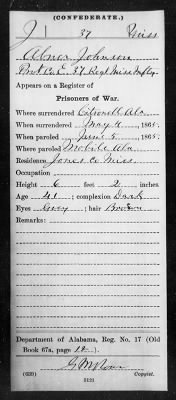 (CONFEDERATE.)
J 37 Miss
Abner Johnson
Pvt Co E. 37 Regt Miss Infty
Appears on a Register of
Prisoners of War.
Where surrendered Citronell Ala
When surrendered May 4, 1865.
When paroled June 5 1865.
Where paroled Mobile Ala
Residence Jones Co Miss
Occupation
Height 6 feet 2 inches
Age 41; complexion Dark
Eyes Grey; hair Brown
Remarks:
Department of Alabama, Reg. No. 17 (Old
Book 67a, page 12).
(639) Copyist.